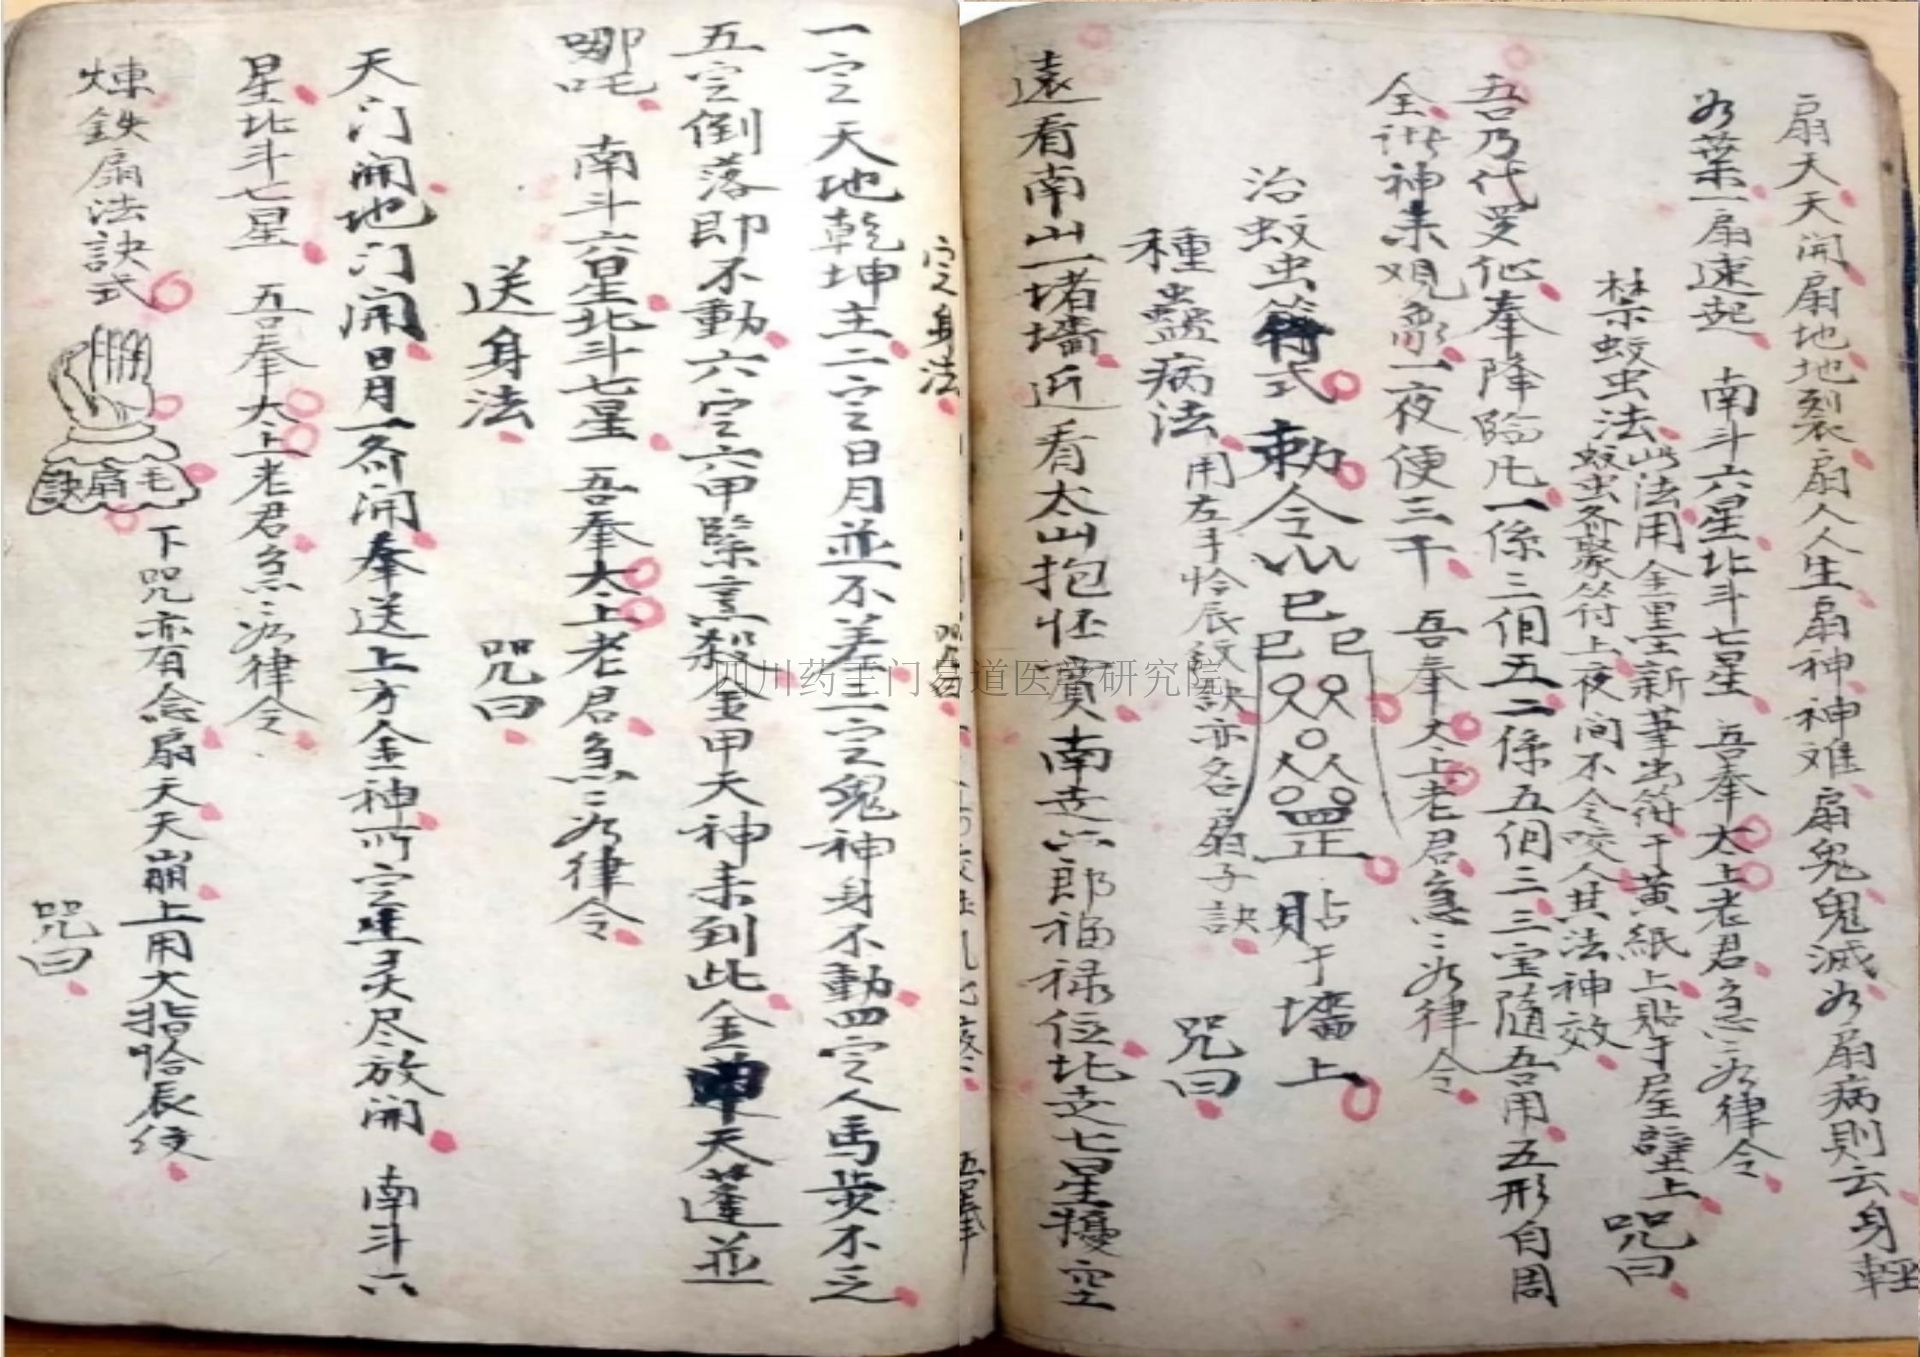 扇天天開扇地地裂扇人人生扇神神难扇鬼鬼滅为扇病則云身輕
为葉一扇速起 南斗六星北斗七星 吾奉太上老君急急为律令
禁蚊虫法 此法用金墨新筆出符于黄紙上貼于屋壁上 咒曰
蚊虫各聚符上夜间不令咬人其法神效
吾乃代受仙奉降臨凡一係三個五二係五個二三宝隨吾用五形自周
全 神来观 一夜便三干 吾奉太上老君急急为律令
治蚊虫符式 勅令 巳 巳 巳 罡 貼于墻上
種蠱病法 用左手 辰 訣亦名扇子訣 咒曰
遠看南山一堵墻近看太山抱怀 南走六郎福禄位北走七星 空
定身法 咒曰
吾奉
一定天地乾坤主二定日月並不差三定鬼神身不動四定人馬步不
五定倒落即不動六定六甲 黑殺金甲天神来到此金 天蓬並
哪吒 南斗六星北斗七星 吾奉太上老君急急为律令
送身法 咒曰
天门開地门開日月一各開奉送上方金神所定 尽放開 南斗六
星北斗七星 吾奉太上老君急急为律令
煉鉄扇法訣式 毛扇訣 下咒亦有念扇天天崩上用大指 辰 咒曰
四川药王门易道医学研究院